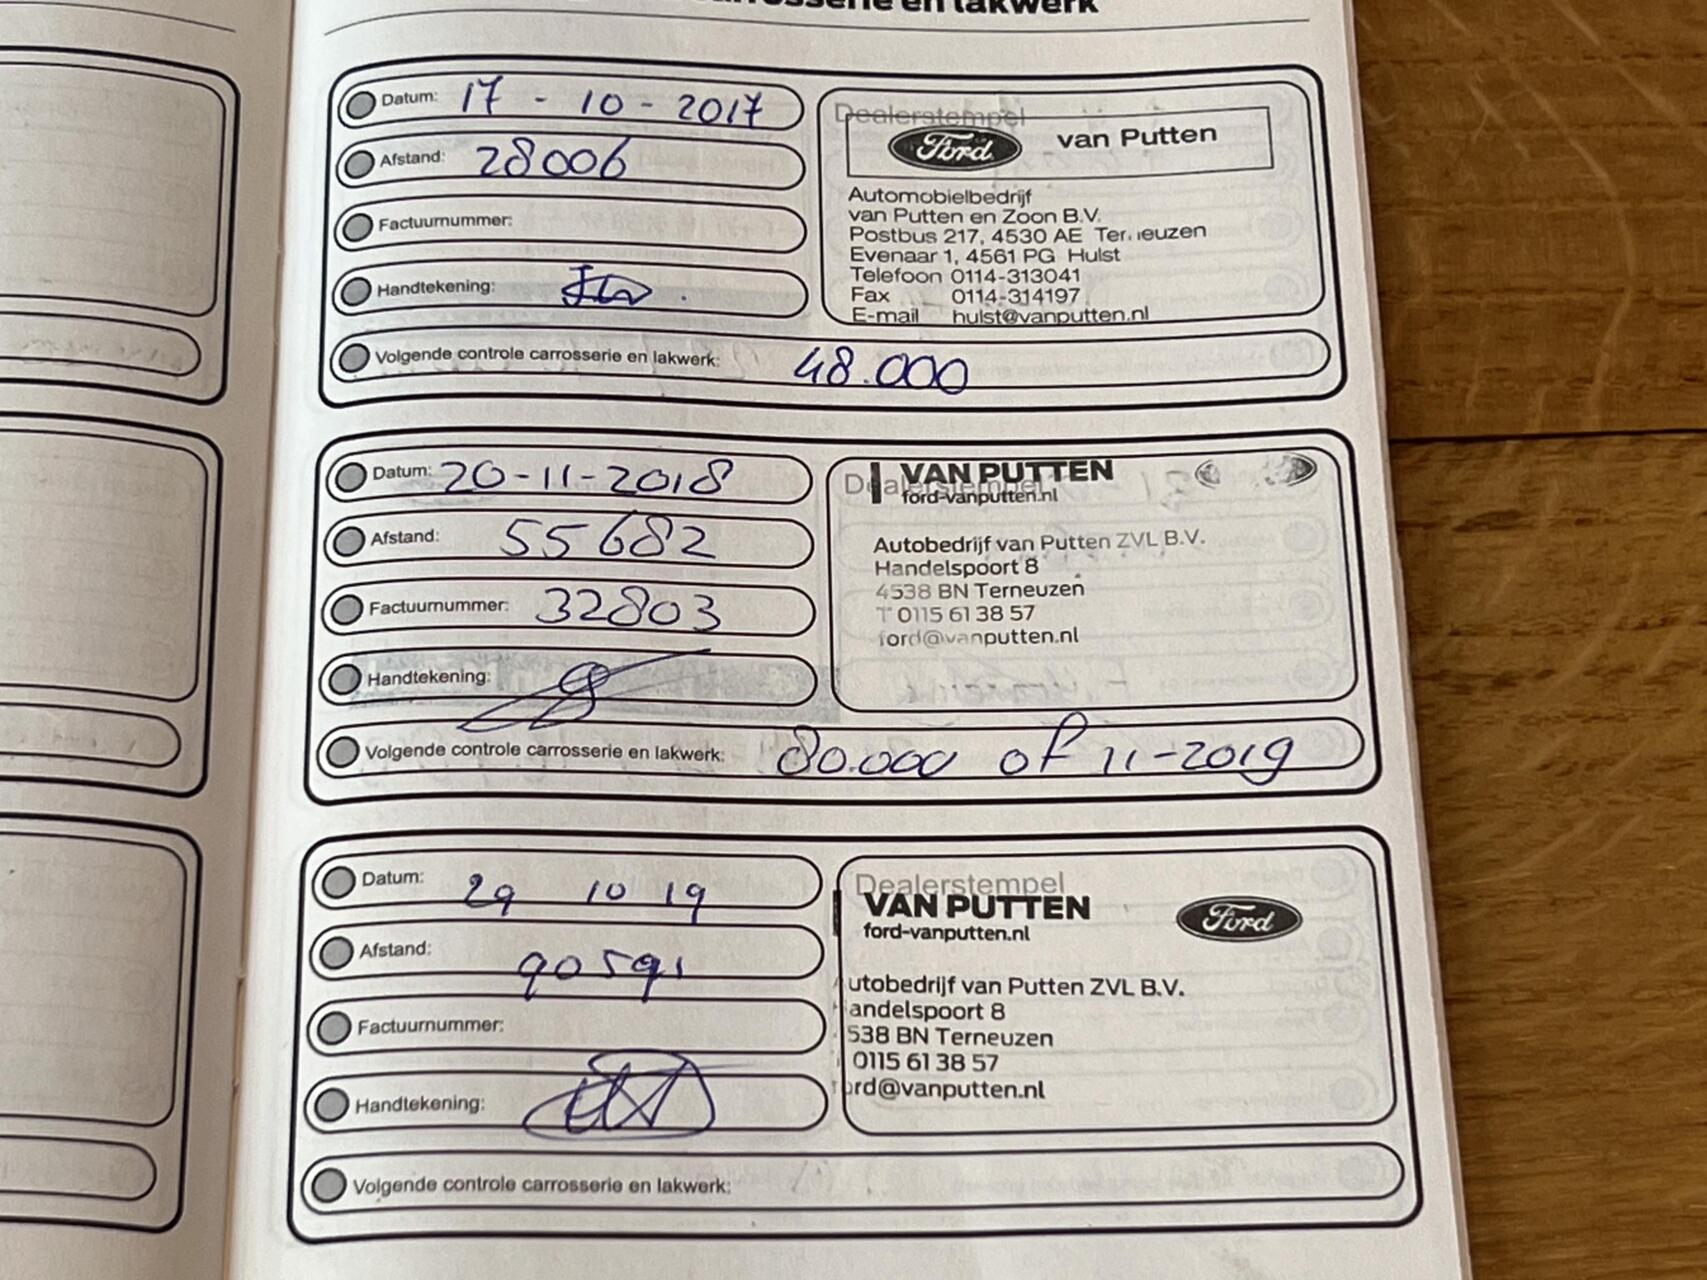 carrosserie en lakwerk
Datum: 17 - 10 - 2017
Afstand: 28006
Factuurnummer:
Handtekening:
Dealerstempel
Ford van Putten
Automobielbedrijf
van Putten en Zoon B.V.
Postbus 217, 4530 AE Terneuzen
Evenaar 1, 4561 PG Hulst
Telefoon 0114-313041
Fax 0114-314197
E-mail hulst@vanputten.nl
Volgende controle carrosserie en lakwerk: 48.000
Datum: 20-11-2018
Afstand: 55682
Factuurnummer: 32803
Handtekening:
Dealerstempel
VAN PUTTEN
ford-vanputten.nl
Autobedrijf van Putten ZVL B.V.
Handelspoort 8
4538 BN Terneuzen
T 0115 61 38 57
ford@vanputten.nl
Volgende controle carrosserie en lakwerk: 80.000 of 11-2019
Datum: 29 10 19
Afstand: 90591
Factuurnummer:
Handtekening:
Dealerstempel
VAN PUTTEN
ford-vanputten.nl
Ford
utobedrijf van Putten ZVL B.V.
andelspoort 8
538 BN Terneuzen
0115 61 38 57
ord@vanputten.nl
Volgende controle carrosserie en lakwerk: